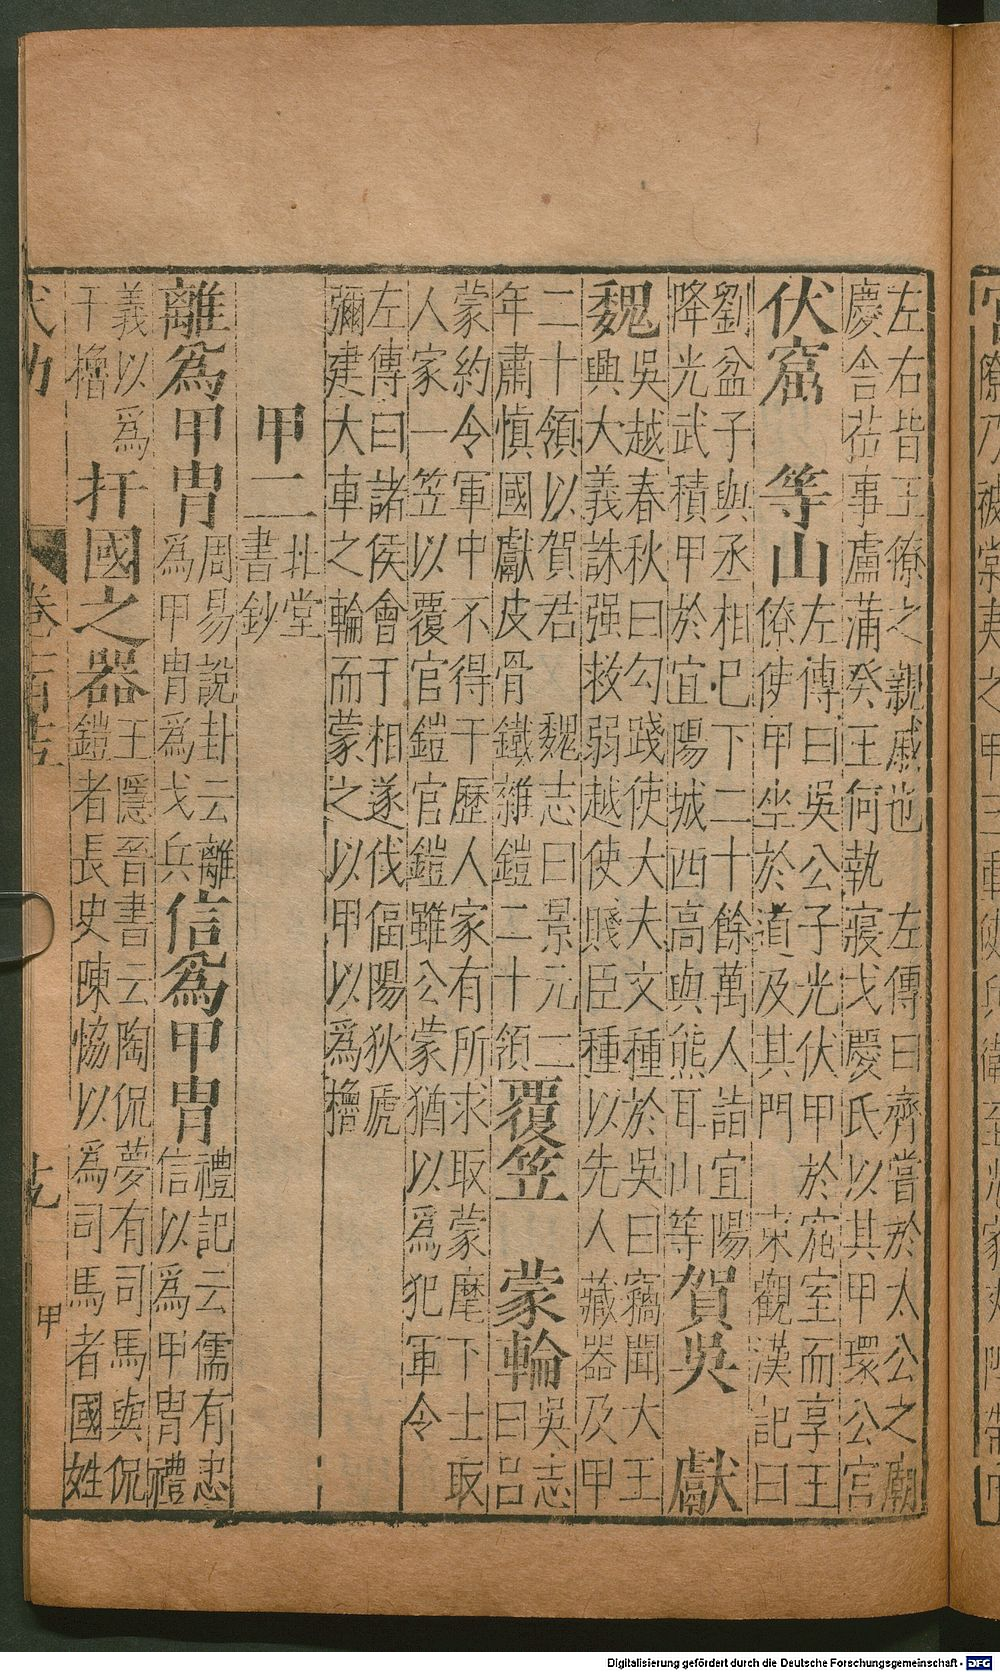 左右皆王僚之親戚也　左傳曰齊嘗於太公之廟
慶舍莅事盧蒲癸王何執寢戈慶氏以其甲環公宮
伏窟　等山
左傳曰吳公子光伏甲於窟室而享王
僚使甲坐於道及其門　東觀漢記曰
劉盆子與丞相已下二十餘萬人詣宜陽
降光武積甲於宜陽城西高與熊耳山等
賀吳　獻
魏
吳越春秋曰勾踐使大夫文種於吳曰竊聞大王
興大義誅强救弱越使賤臣種以先人藏器及甲
二十領以賀君　魏志曰景元二
年肅慎國獻皮骨鐵雜鎧二十領
覆笠　蒙輪
吳志
曰呂
蒙約令軍中不得干歷人家有所求取蒙麾下士取
人家一笠以覆官鎧官鎧雖公蒙猶以爲犯軍令
左傳曰諸侯會于相遂伐偪陽狄虒
彌建大車之輪而蒙之以甲以爲櫓
甲二
北堂
書鈔
離爲甲冑
周易說卦云離
爲甲冑爲戈兵
信爲甲冑
禮記云儒有忠
信以爲甲冑禮
義以爲
干櫓
扞國之器
王隱晉書云陶侃夢有司馬與侃
鎧者長史陳恊以爲司馬者國姓
甲